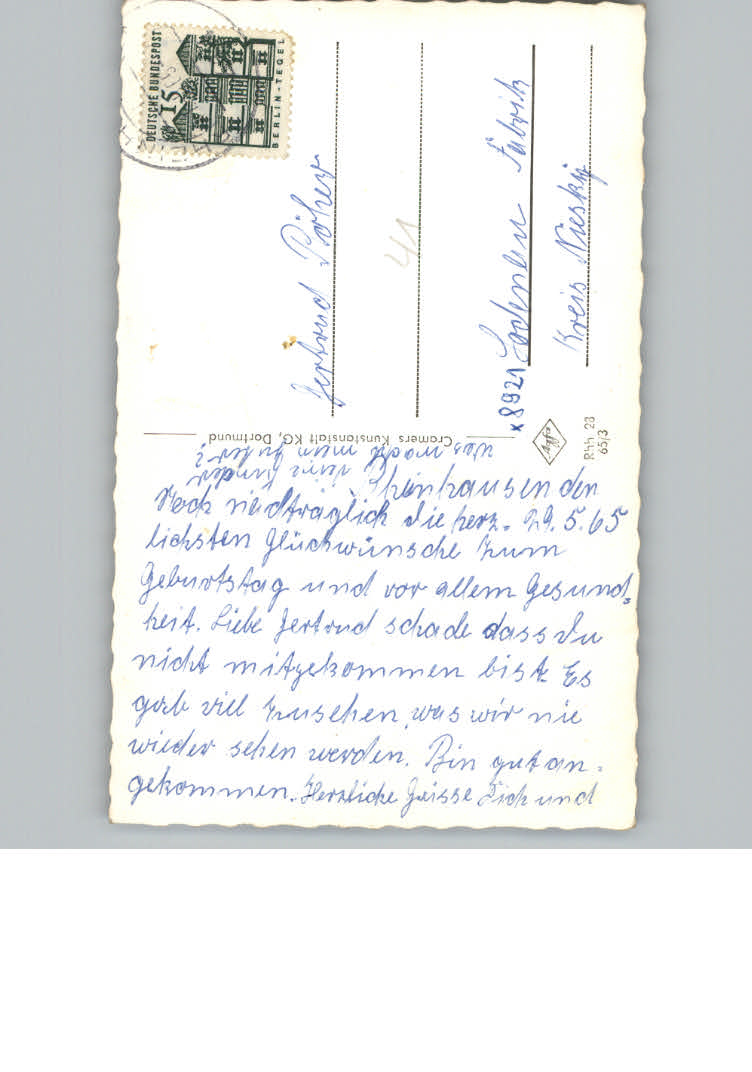 DEUTSCHE BUNDESPOST
15
BERLIN-TEGEL
Gertrud Pöher
41
x8921 Sodenlen Fabrik
Kreis Niesky
Cramers Kunstanstalt KG, Dortmund
Rhh 28
65/3
Rheinhausen den
29.5.65
Noch nachträglich die herz-
lichsten Glückwünsche zum
Geburtstag und vor allem Gesund-
heit. Liebe Gertrud schade dass Du
nicht mitgekommen bist. Es
gab viel zusehen, was wir nie
wieder sehen werden. Bin gut an-
gekommen. Herzliche Grüsse Dich und
deine Kinder
was macht mein Kater?